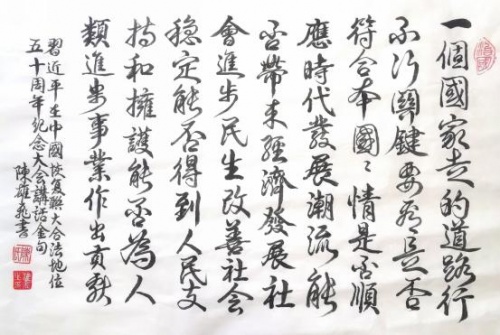 一個國家走的道路行
不行關鍵要看是否
符合本國〻情是否順
應時代發展潮流能
否帶來經濟發展社
會進步民生改善社會
穩定能否得到人民支
持和擁護能否為人
類進步事業作出貢獻
習近平在中國恢復聯大合法地位
五十周年紀念大會講話金句
陳雄書